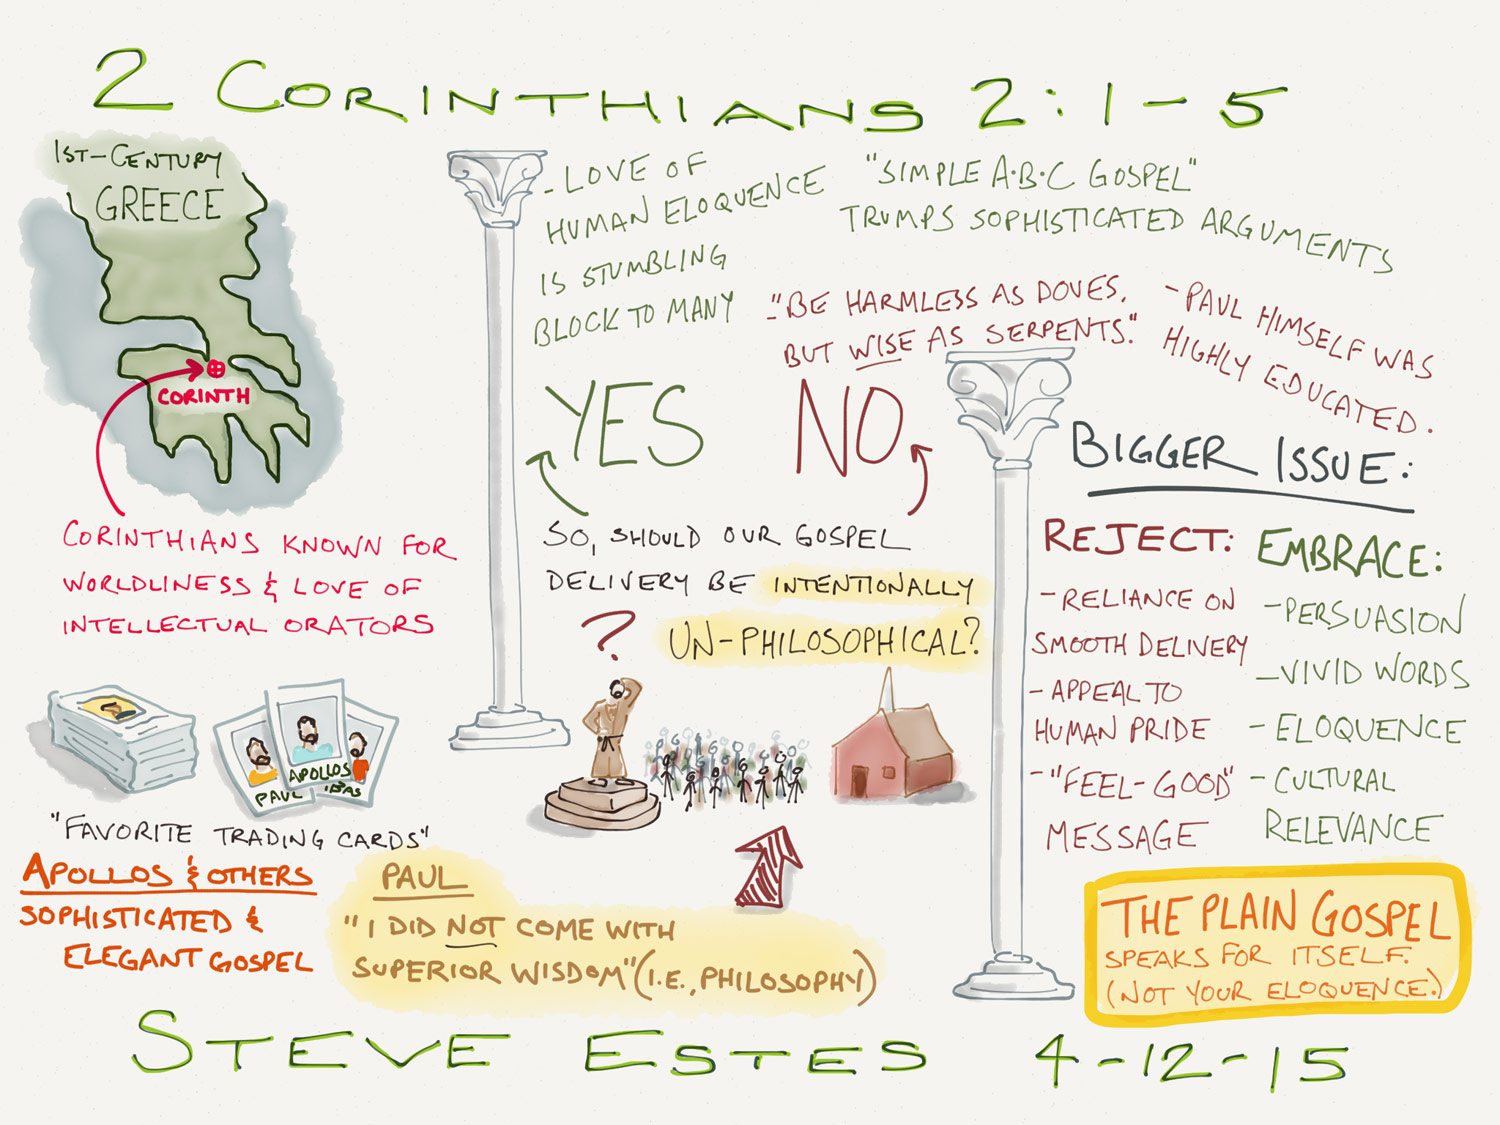 2 CORINTHIANS 2:1-5
1ST-CENTURY
GREECE
CORINTH
CORINTHIANS KNOWN FOR
WORLDLINESS & LOVE OF
INTELLECTUAL ORATORS
APOLLOS
PAUL
"FAVORITE TRADING CARDS"
APOLLOS & OTHERS
SOPHISTICATED &
ELEGANT GOSPEL
PAUL
"I DID NOT COME WITH
SUPERIOR WISDOM" (I.E., PHILOSOPHY)
- LOVE OF
HUMAN ELOQUENCE
IS STUMBLING
BLOCK TO MANY
"SIMPLE A·B·C GOSPEL"
TRUMPS SOPHISTICATED ARGUMENTS
- "BE HARMLESS AS DOVES,
BUT WISE AS SERPENTS."
- PAUL HIMSELF WAS
HIGHLY EDUCATED.
YES
NO
SO, SHOULD OUR GOSPEL
DELIVERY BE INTENTIONALLY
UN-PHILOSOPHICAL?
?
BIGGER ISSUE:
REJECT:
- RELIANCE ON
SMOOTH DELIVERY
- APPEAL TO
HUMAN PRIDE
- "FEEL-GOOD"
MESSAGE
EMBRACE:
- PERSUASION
- VIVID WORDS
- ELOQUENCE
- CULTURAL
RELEVANCE
THE PLAIN GOSPEL
SPEAKS FOR ITSELF.
(NOT YOUR ELOQUENCE.)
STEVE ESTES 4-12-15